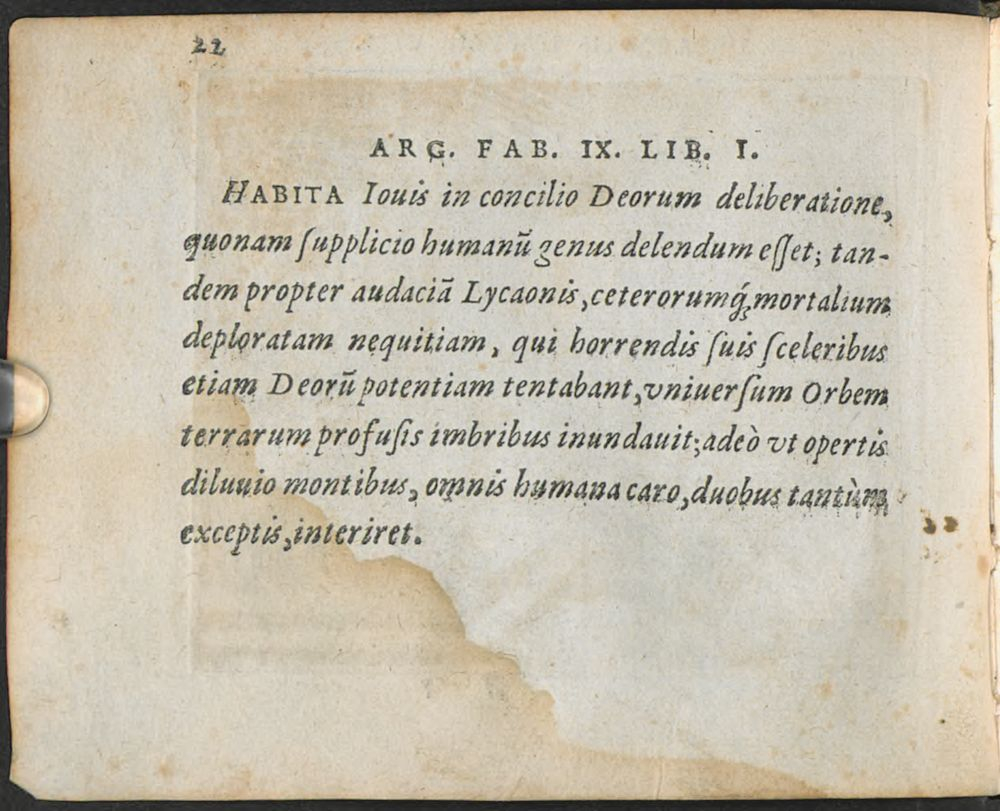 22
ARG. FAB. IX. LIB. I.
HABITA Iouis in concilio Deorum deliberatione,
quonam ſupplicio humanũ genus delendum eſſet; tan-
dem propter audaciã Lycaonis, ceterorumq́; mortalium
deploratam nequitiam, qui horrendis ſuis ſceleribus
etiam Deorũ potentiam tentabant, vniuerſum Orbem
terrarum profuſis imbribus inundauit; adeò vt opertis
diluuio montibus, omnis humana caro, duobus tantùm
exceptis, interiret.